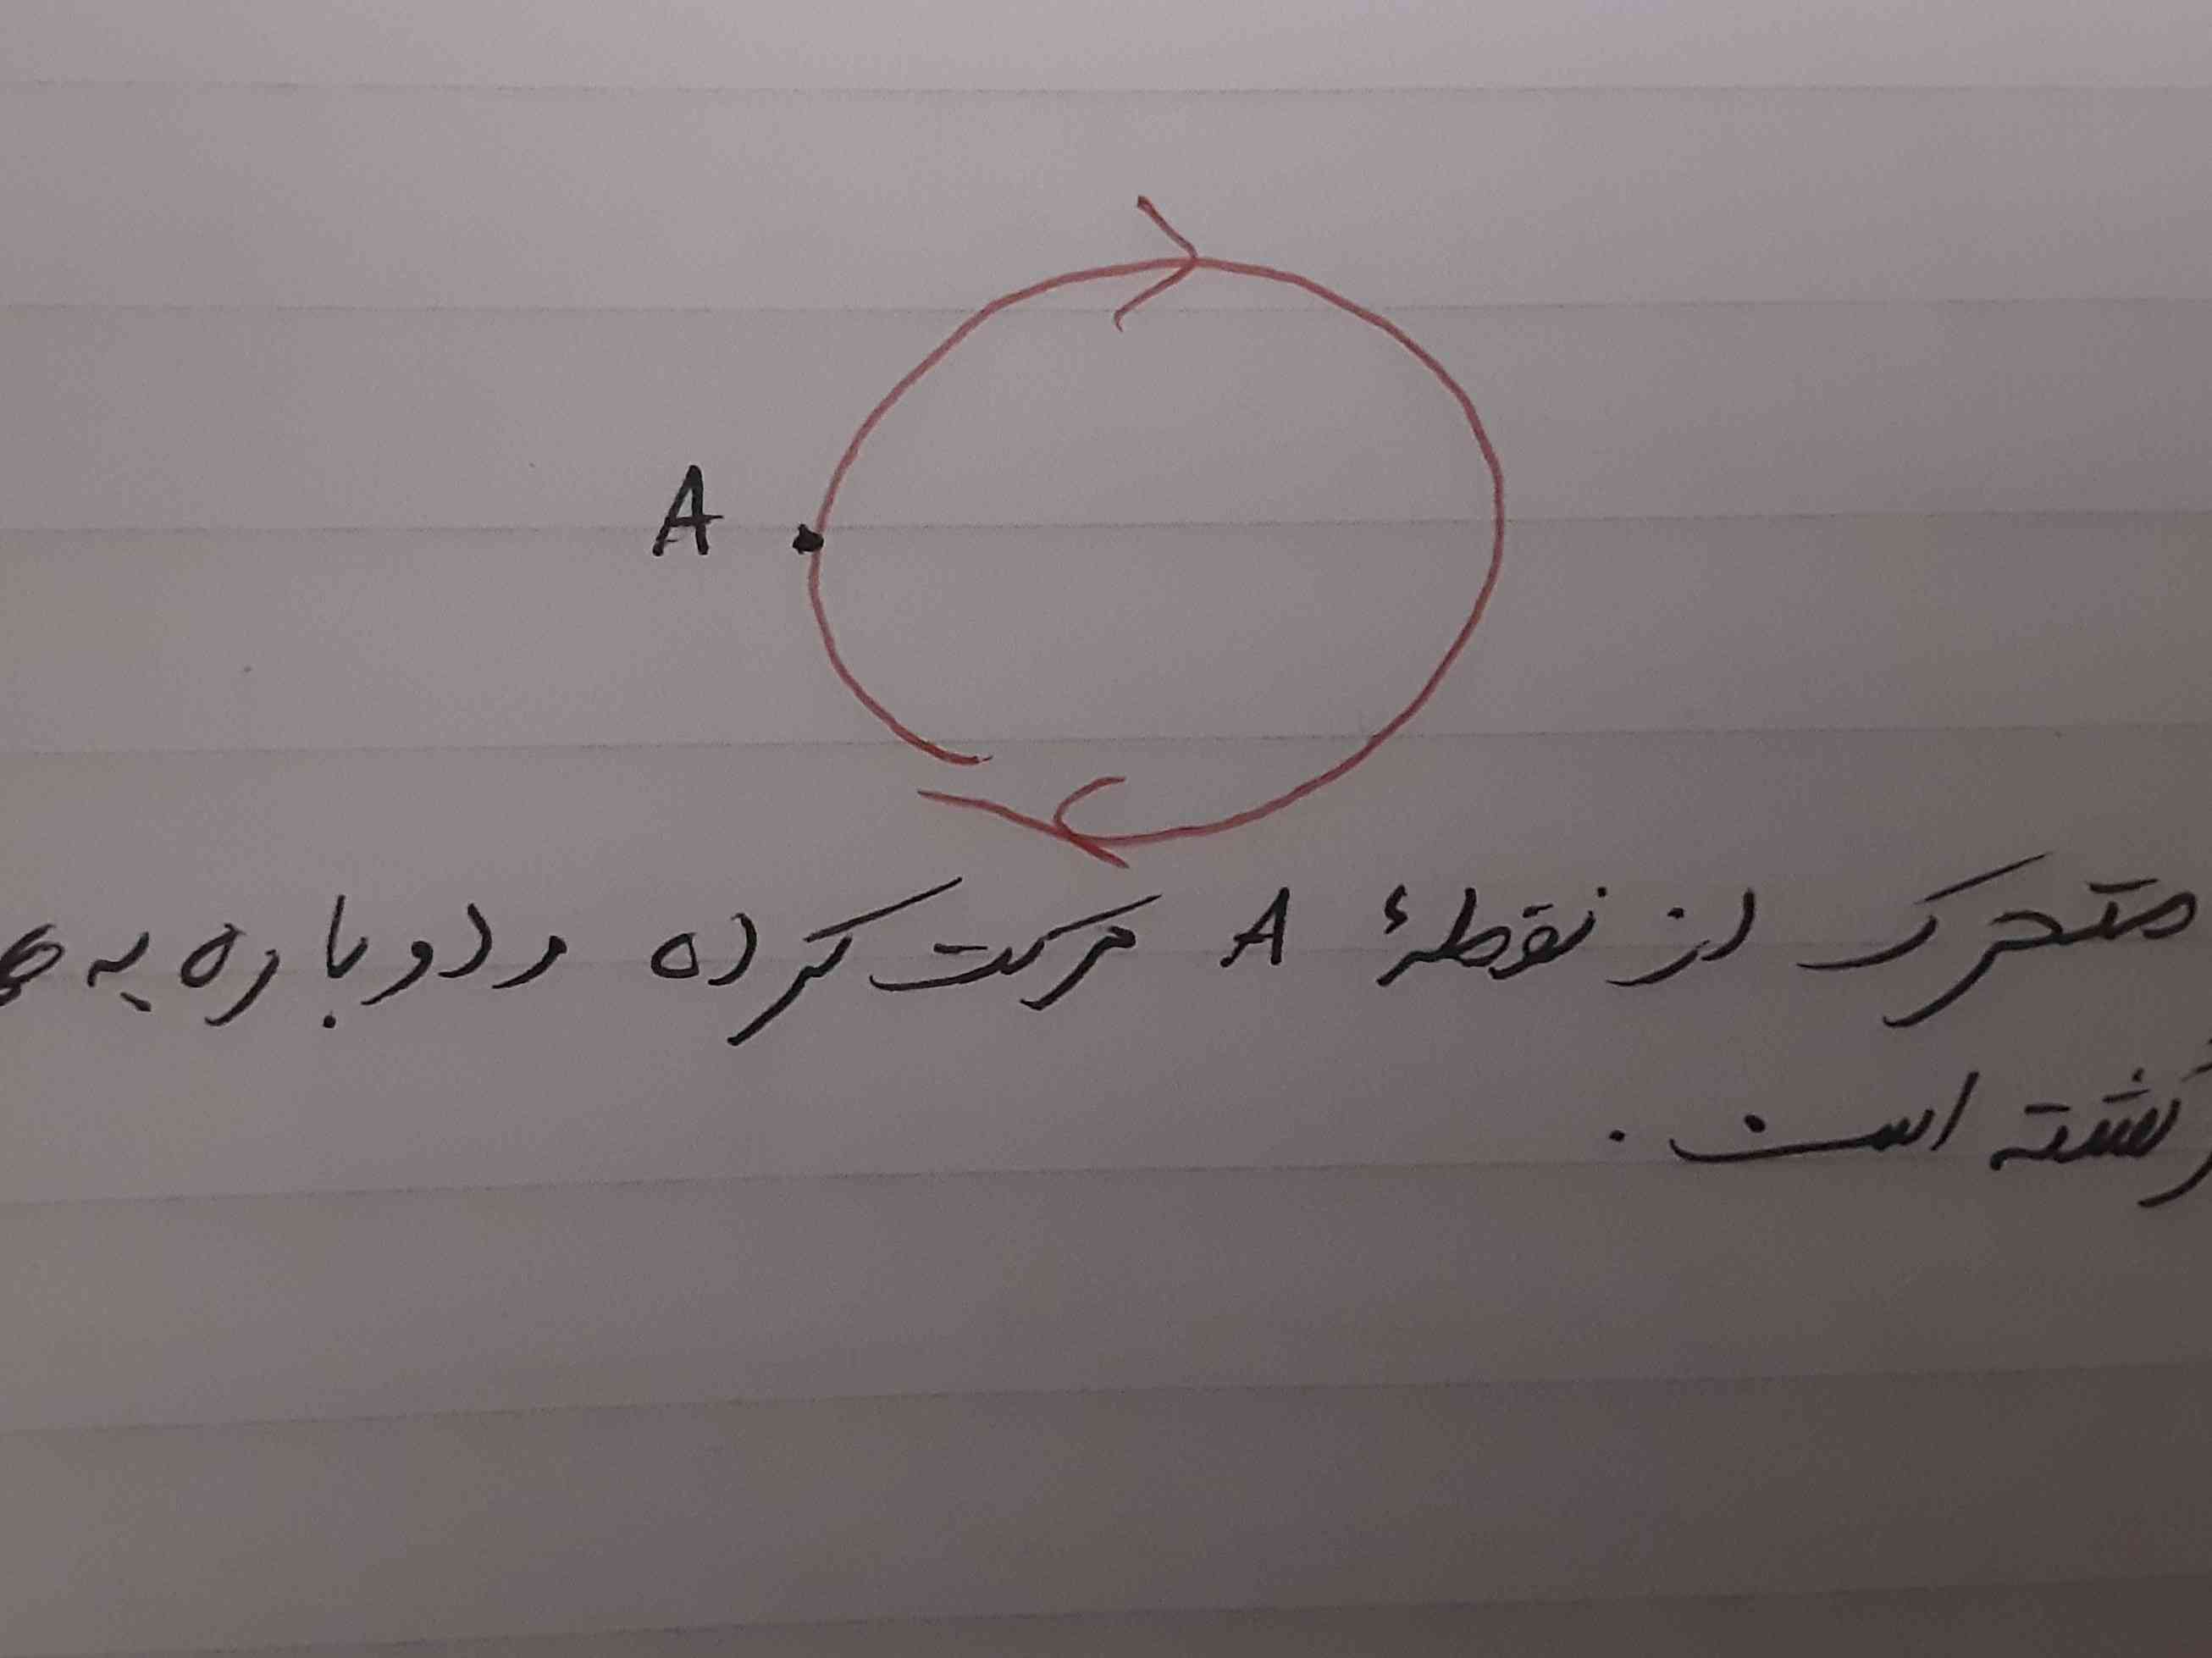 A
متحرک از نقطهٔ A حرکت کرده و دوباره به
گشته است .